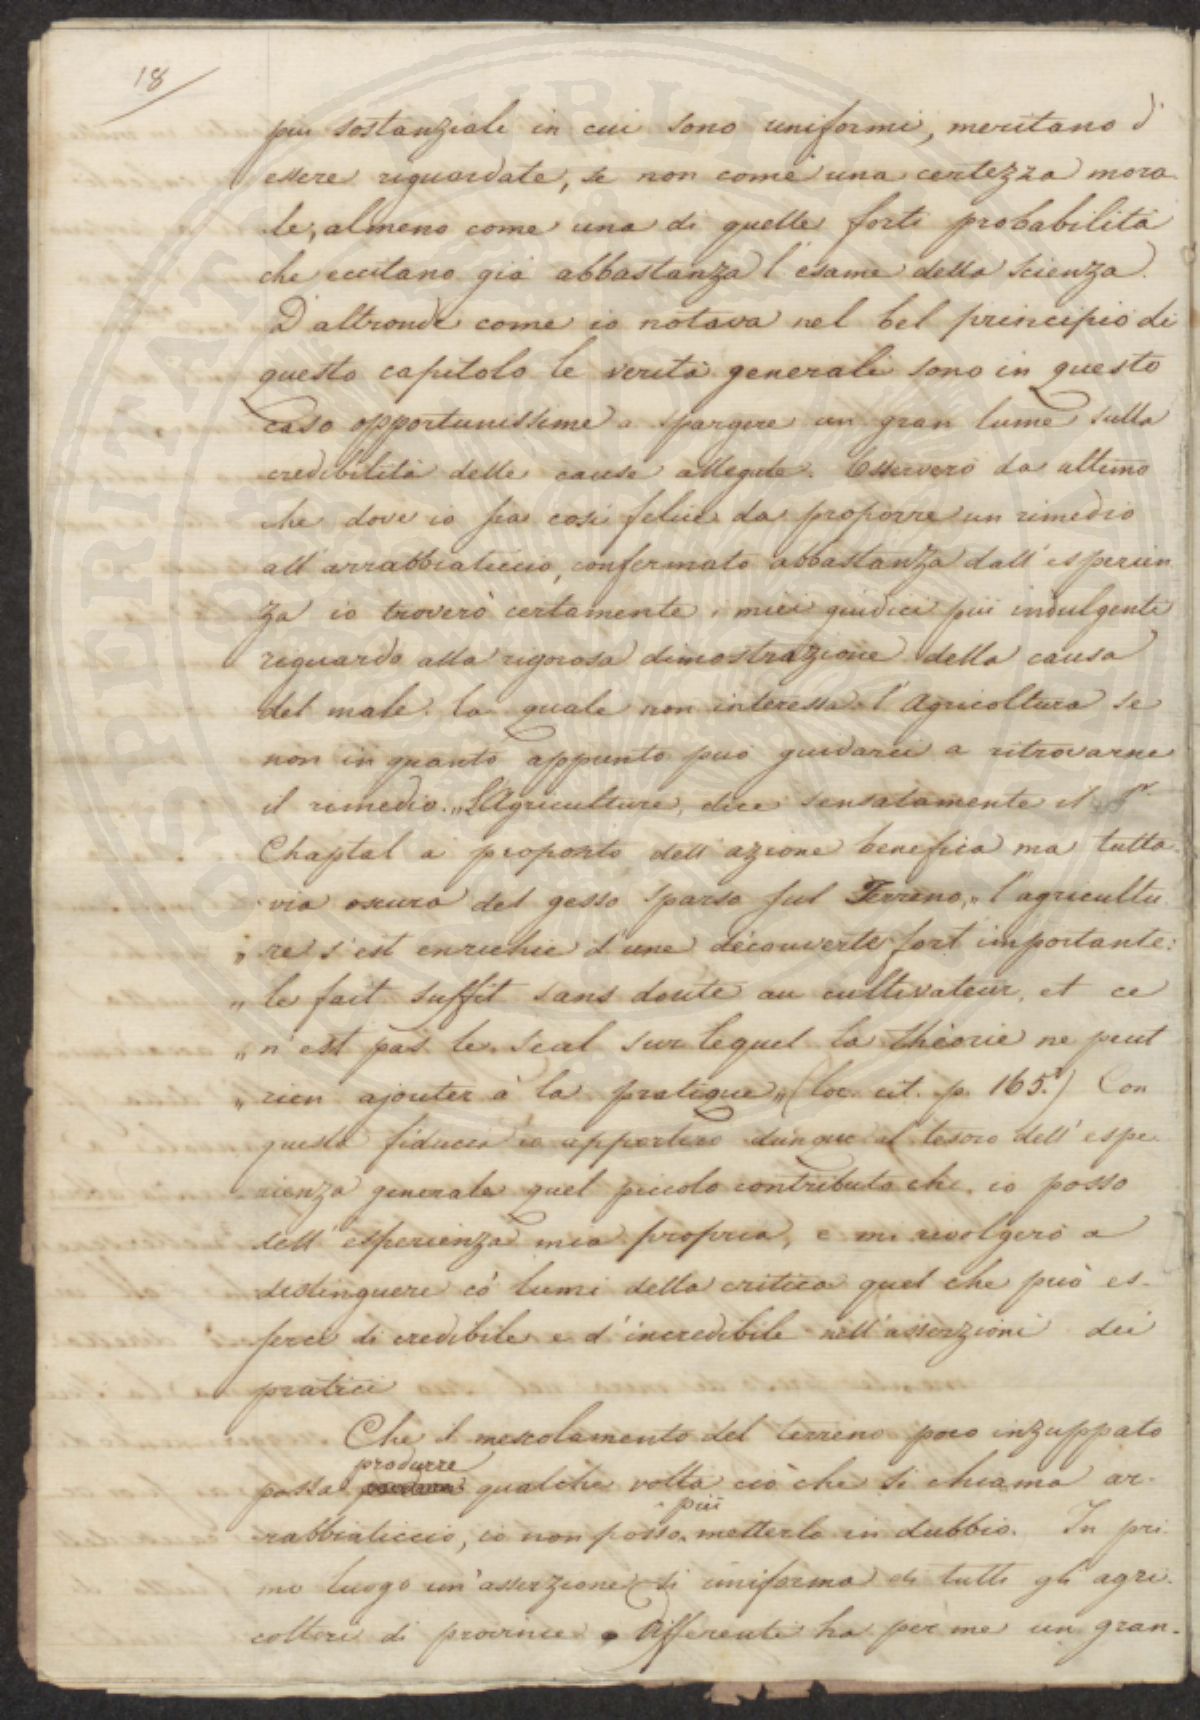 18
piu sostanziale in cui sono uniformi, meritano d'
essere riguardate, se non come una certezza mora-
le, almeno come una di quelle forti probabilità
che eccitano già abbastanza l'esame della scienza.
D'altronde come io notava nel bel principio di
questo capitolo le verità generali sono in questo
caso opportunissime a spargere un gran lume sulla
credibilità delle cause allegate. Osserverò da ultimo
che dove io sia così felice da proporre un rimedio
all'arrabbiaticcio, confermato abbastanza dall'esperien
za io troverò certamente i miei giudici più indulgenti
riguardo alla rigorosa dimostrazione della causa
del male. la quale non interessa l'Agricoltura se
non in quanto appunto può guidarci a ritrovarne
il rimedio. „L'Agriculture, dice sensatamente il Sr.
Chaptal a proposito dell'azione benefica ma tutta-
via oscura del gesso sparso sul Terreno, „l'agricultu
„ re s'est enrichie d'une découverte fort importante:
„ le fait suffit sans doute au cultivateur, et ce
„ n'est pas le seul sur lequel la théorie ne peut
„ rien ajouter à la pratique„ (loc. cit. p. 165.) Con
questa fiducia io apporterò dunque al tesoro dell'espe-
rienza generale quel piccolo contributo che io posso
dell'esperienza mia propria, e mi rivolgerò a
distinguere co' lumi della critica quel che può es-
serci di credibile e d'incredibile nell'asserzioni dei
pratici
Che il mescolamento del terreno poco inzuppato
produrre
possa qualche volta ciò che si chiama ar-
più
rabbiaticcio, io non posso metterlo in dubbio. In pri
mo luogo un'asserzione sì uniforme di tutti gli agri-
coltori di provincie differenti ha per me un gran-